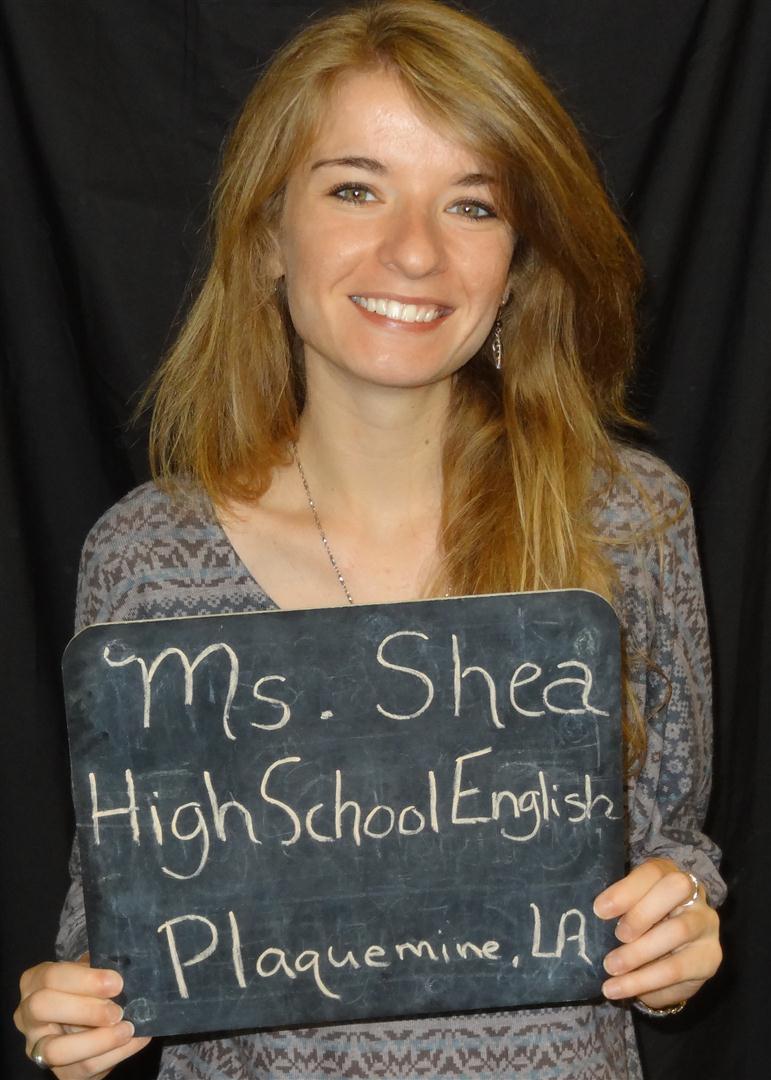 Ms. Shea
High School English
Plaquemine, LA